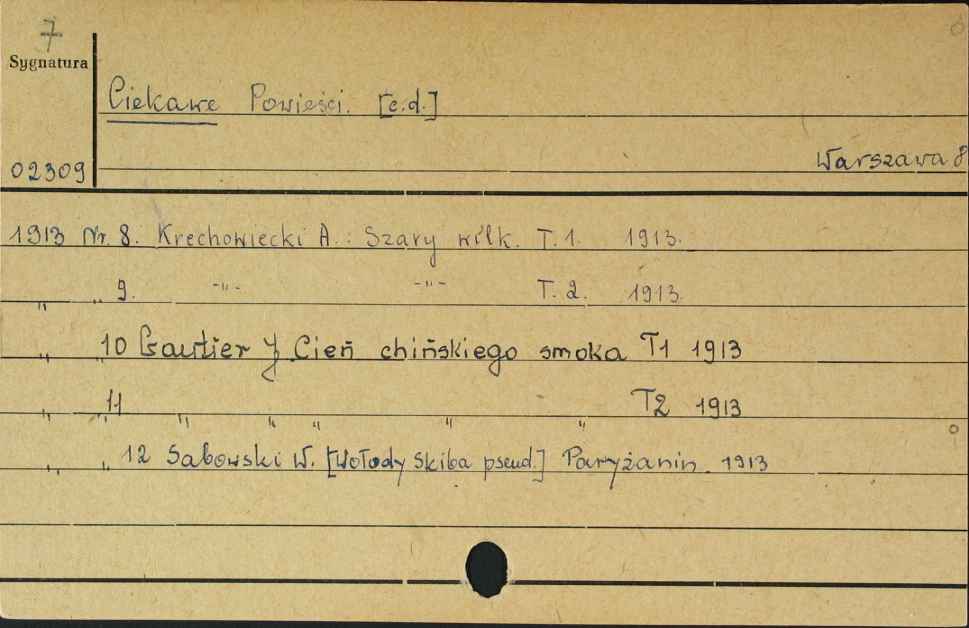 7
Sygnatura
Ciekawe Powieści. [c.d.]
02309
Warszawa 8
1913 Nr. 8. Krechowiecki A.: Szary wilk. T.1. 1913.
" " 9. -"- -"- T.2. 1913.
" " 10 Gautier J Cień chińskiego smoka T1 1913
" " 11 " " " " " T2 1913
" " 12 Sabowski W. [Wołody Skiba pseud.] Paryżanin. 1913